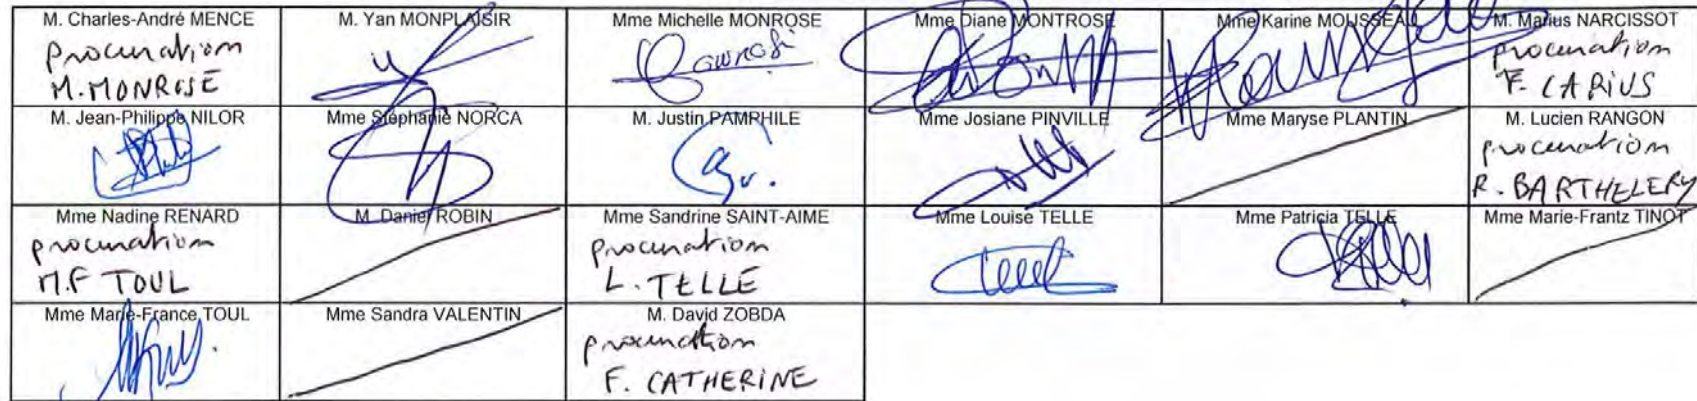 M. Charles-André MENCE
procuration
M. MONROSE
M. Yan MONPLAISIR
Mme Michelle MONROSE
Mme Diane MONTROSE
Mme Karine MOUSSEAU
M. Marius NARCISSOT
procuration
F. CARIUS
M. Jean-Philippe NILOR
Mme Stéphanie NORCA
M. Justin PAMPHILE
Mme Josiane PINVILLE
Mme Maryse PLANTIN
M. Lucien RANGON
procuration
R. BARTHELERY
Mme Nadine RENARD
procuration
M.F TOUL
M. Daniel ROBIN
Mme Sandrine SAINT-AIME
procuration
L. TELLE
Mme Louise TELLE
Mme Patricia TELLE
Mme Marie-Frantz TINOT
Mme Marie-France TOUL
Mme Sandra VALENTIN
M. David ZOBDA
procuration
F. CATHERINE